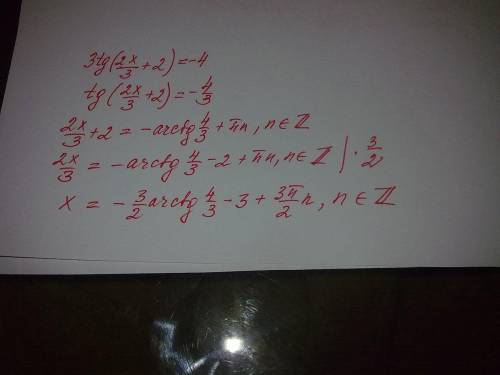 3tg(2x/3+2)=-4
tg(2x/3+2)=-4/3
2x/3+2=-arctg 4/3+πn, n∈ℤ
2x/3 = -arctg 4/3-2+πn, n∈ℤ |·3/2
x = -3/2 arctg 4/3-3+3π/2 n, n∈ℤ